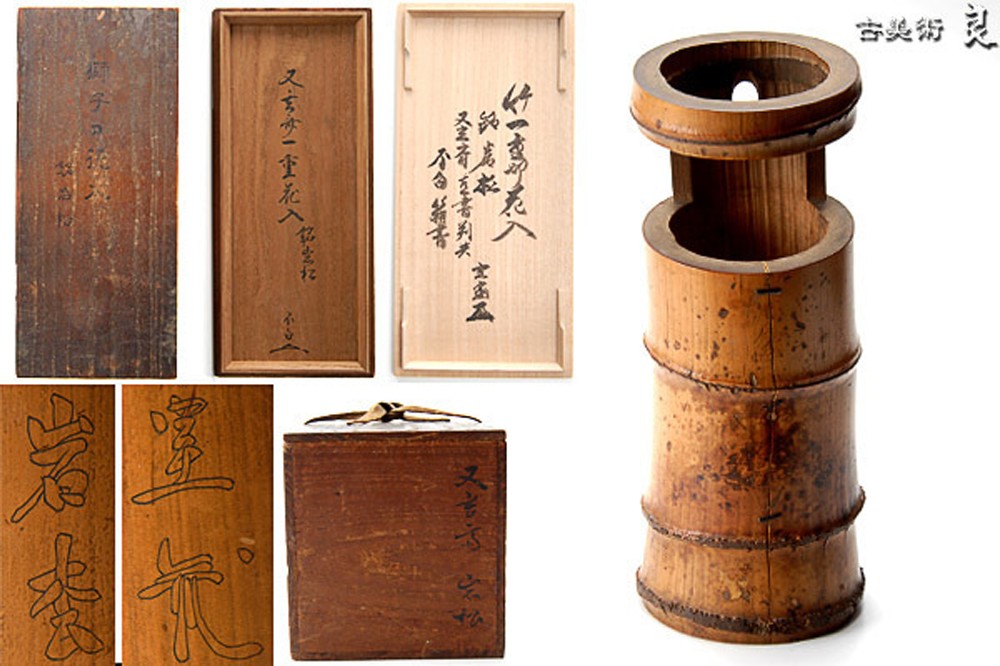 獅子口花入
銘岩松
又玄斎一重花入
銘岩松
不白
竹一重切花入
銘岩松
又玄斎直書判共
不白箱書
宗室
古美術 良
岩松
又玄斎 岩松